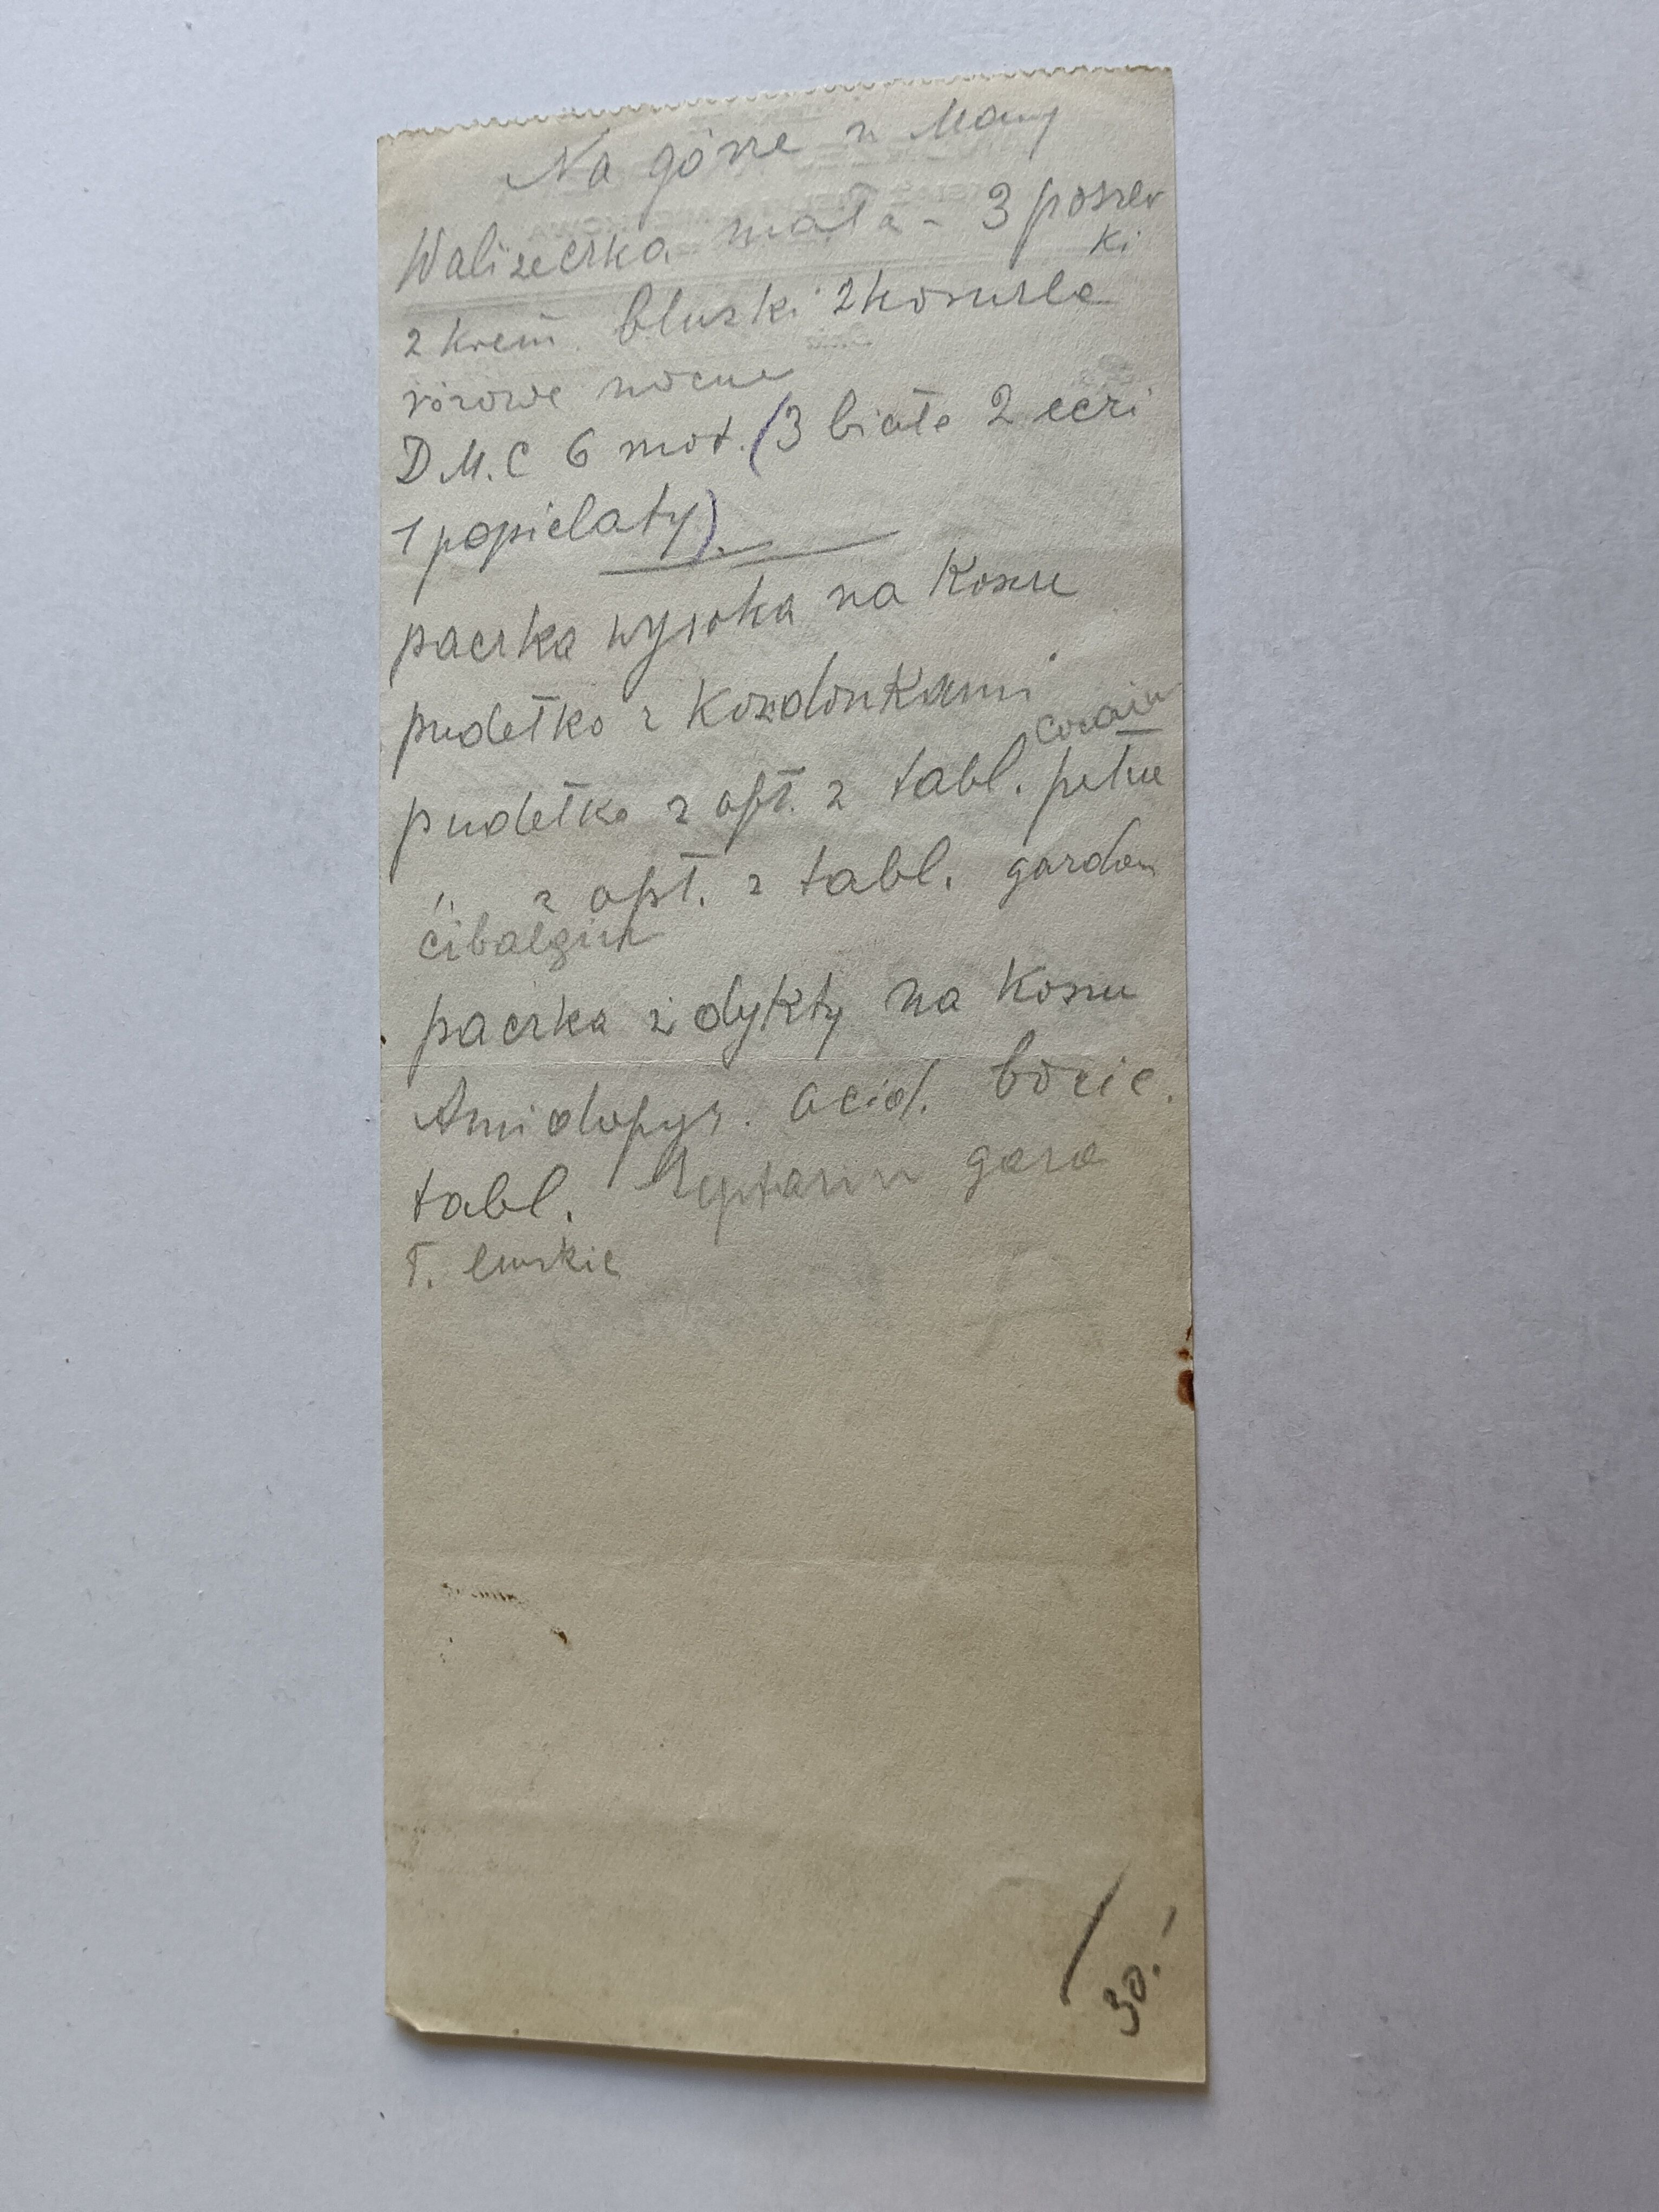 Na górze u Mamy
Walizeczka mała - 3 poszew
ki
2 krem. bluzki 2 koszule
różowe nocne
D.M.C 6 mot. (3 białe 2 ecri
1 popielaty).
paczka wysoka na Koszu
pudełko z Kordonkami
pudełko z apt. z tabl. pełne
" z apt. z tabl. gardan
cibalgin
paczka z dykty na Koszu
Amidopyr. acid. boric.
tabl. gaza
T. Emskie
30.-